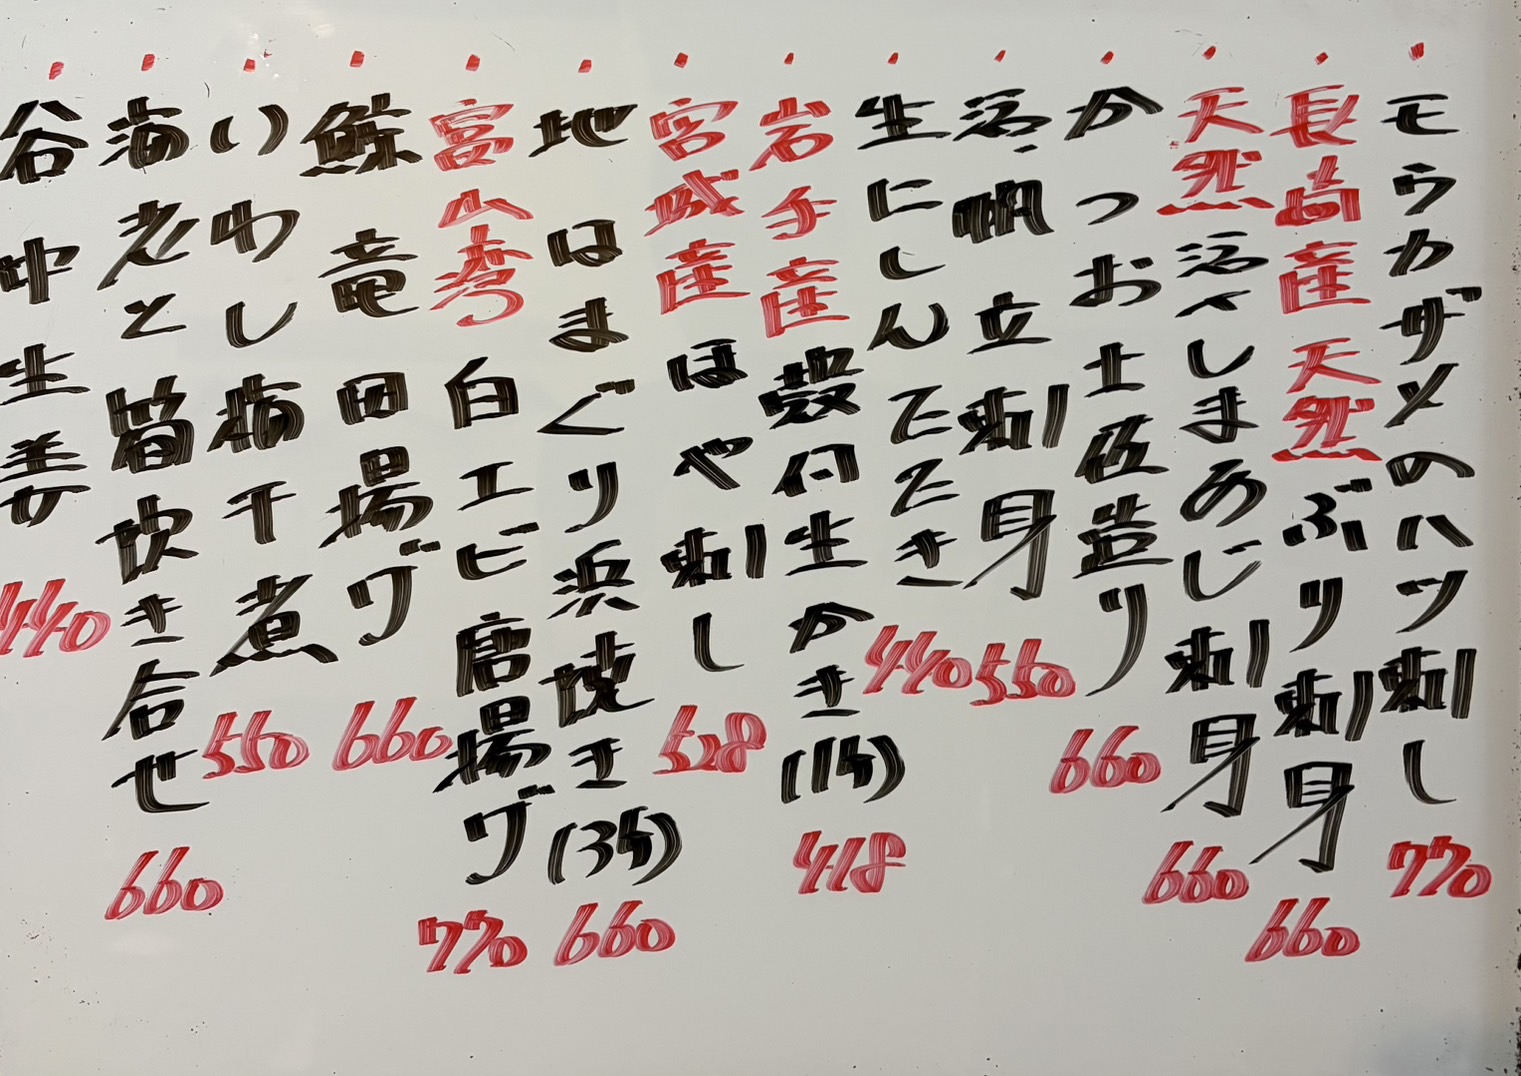 モウカザメのハツ刺し 770
長崎産天然ぶり刺身 660
天然活〆しまあじ刺身 660
かつお土佐造り 660
活帆立刺身 550
生にしんたたき 440
岩手産殻付生かき(1ケ) 418
宮城産ほや刺し 528
地はまぐり浜焼き(3ケ) 660
富山湾白エビ唐揚げ 770
鯨竜田揚げ 660
いわし梅干煮 550
海老と筍炊き合せ 660
谷中生姜 440